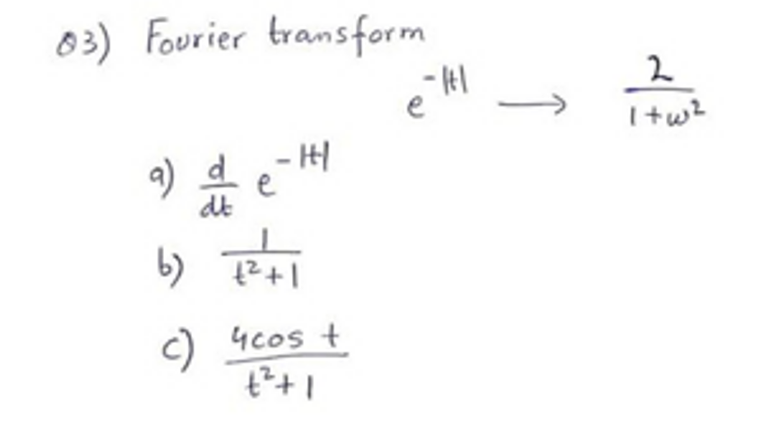 Q3) Fourier transform
e^{-|t|} → \frac{2}{1+ω^2}
a) \frac{d}{dt} e^{-|t|}
b) \frac{1}{t^2+1}
c) \frac{4cos t}{t^2+1}